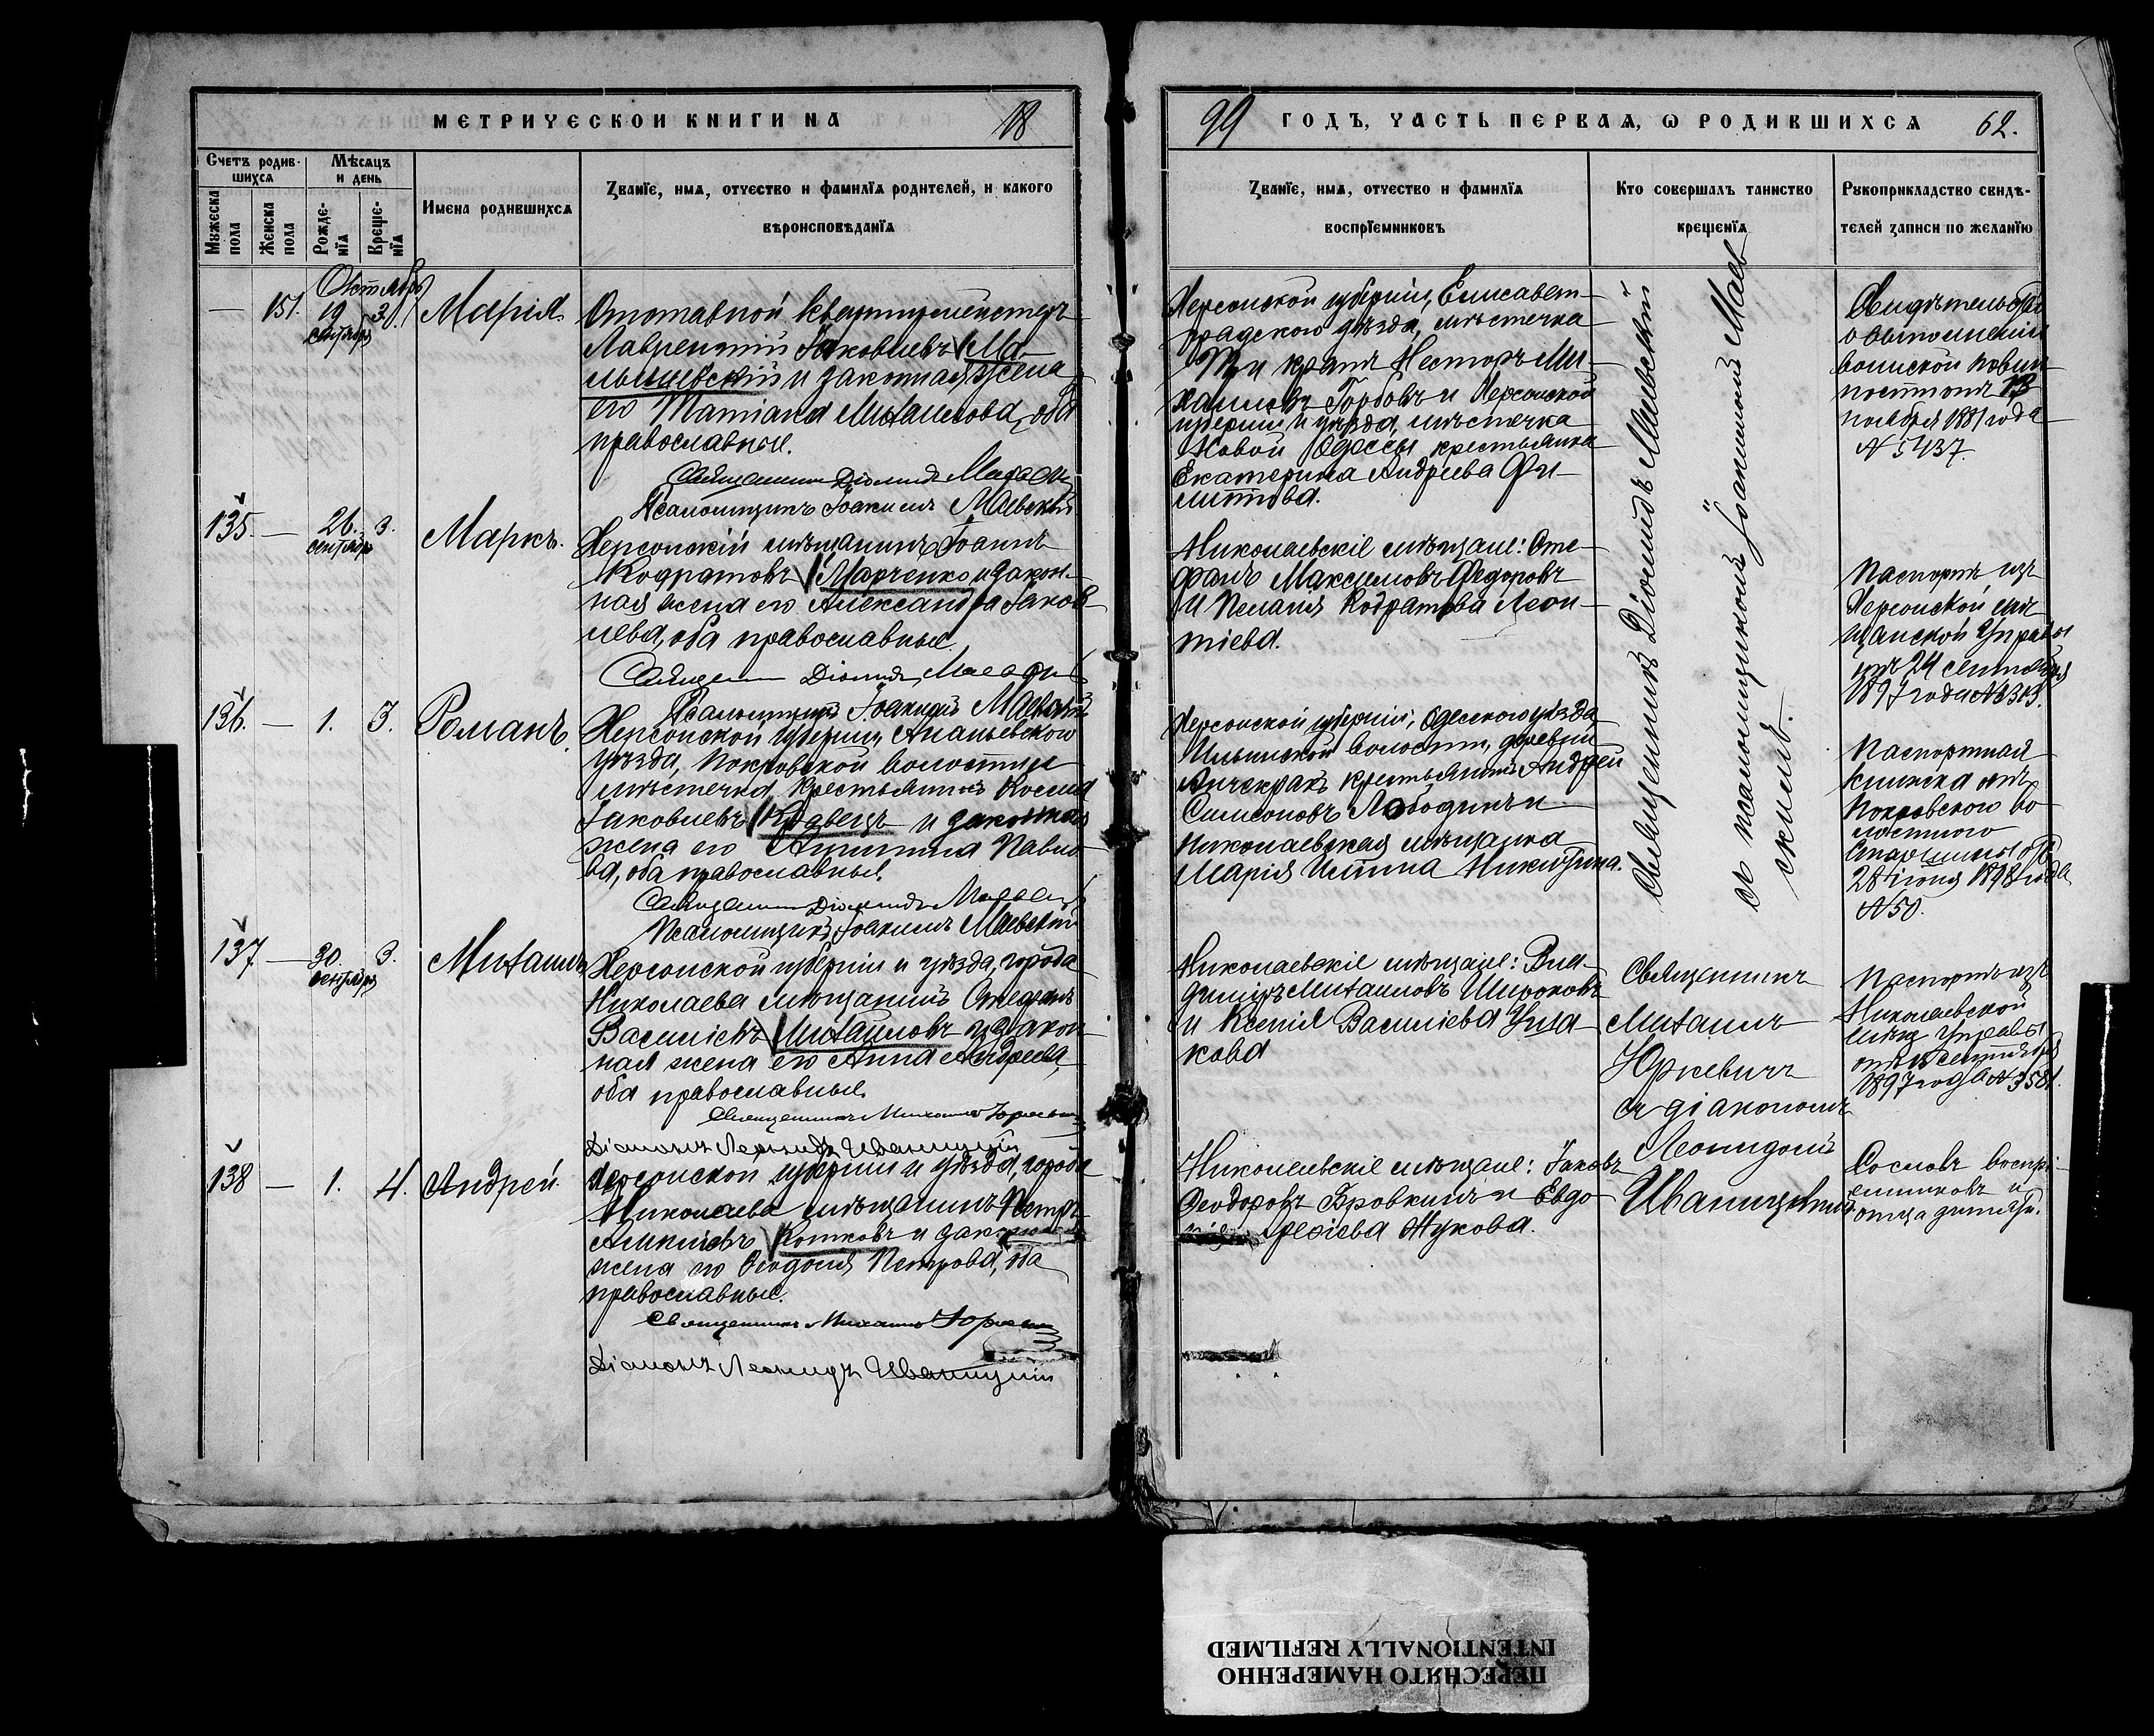 МЕТРИЧЕСКОЙ КНИГИ НА 18
Счетъ родив-
шихся
Мѣсяцъ
и день
Мужеска
пола
Женска
пола
Рожде-
нія
Креще-
нія
Имена родившихся
Званіе, имя, отчество и фамилія родителей, и какого
вѣроисповѣданія
Октябрь
— 151. 19 сентября 3. Марія.
Отставной квартирмейстеръ
Лаврентій Іаковлевъ
и законная жена
его Татіана Михаилова, оба
православные.
Священникъ Діомидъ Маевскій
Псаломщикъ Іоакимъ Маевскій
135. — 26. сентября 3. Маркъ.
Херсонскій мѣщанинъ Іоаннъ
Кодратовъ Марченко и закон-
ная жена его Александра Іаков-
лева, оба православные.
Священникъ Діомидъ Маевскій
Псаломщикъ Іоакимъ Маевскій
136. — 1. 3. Романъ.
Херсонской губерніи, Ананьевскаго
уѣзда, Покровской волости
мѣстечка, крестьянинъ Косма
Іаковлевъ и законная
жена его Павло-
ва, оба православные.
Священникъ Діомидъ Маевскій
Псаломщикъ Іоакимъ Маевскій
137 — 30. сентября 3. Михаилъ
Херсонской губерніи и уѣзда, города
Николаева мѣщанинъ Стефанъ
Василіевъ Михайловъ и закон-
ная жена его Анна Андреева,
оба православные.
Священникъ Михаилъ Юркевичъ
Діаконъ Леонидъ Иваницкій
138 — 1. 4. Андрей.
Херсонской губерніи и уѣзда, города
Николаева мѣщанинъ Петръ
Котковъ и законная
жена его Феодосія Петрова, оба
православные.
Священникъ Михаилъ Юркевичъ
Діаконъ Леонидъ Иваницкій
99 ГОДЪ, ЧАСТЬ ПЕРВАЯ, Ѡ РОДИВШИХСЯ 62.
Званіе, имя, отчество и фамилія
воспріемниковъ
Кто совершалъ таинство
крещенія
Рукоприкладство свидѣ-
телей записи по желанію
Херсонской губерніи, Елисавет-
градскаго уѣзда, мѣстечка
Несторъ Ми-
хаиловъ Горбовъ и Херсонской
губерніи и уѣзда, мѣстечка
Новой Одессы крестьянка
Екатерина Андреева Фи-
липпова.
Николаевскіе мѣщане: Сте-
фанъ Максимовъ Федоровъ
и Пелагія Кодратова Леон-
тіева.
Херсонской губерніи, Одесскаго уѣзда
Ильинской волости, деревни
Анчекракъ крестьянинъ Андрей
Симеоновъ Лободинъ и
Николаевская мѣщанка
Марія Никитина.
Николаевскіе мѣщане: Вла-
диміръ Михаиловъ Широковъ
и Ксенія Василіева
кова
Николаевскіе мѣщане: Іаковъ
Феодоровъ Бровкинъ и Евдо-
Жукова.
Священникъ Діомидъ Маевскій
съ псаломщикомъ Іоакимомъ Маев-
скимъ.
Священникъ
Михаилъ
Юркевичъ
съ діакономъ
Леонидомъ
Иваницкимъ
Свидѣтельство
о выполненіи
воинской повин-
ности отъ 13
ноября 1881 года
№ 5437.
Паспортъ изъ
Херсонской мѣ-
щанской Управы
отъ 24 сентября
1897 года №
Паспортная
книжка отъ
Покровскаго во-
лостного
Старшины отъ
28 іюня 1898 года
№ 50.
Паспортъ изъ
Николаевской
мѣщ. Управы
1897 года № 3581.
Со словъ воспрі-
емниковъ и
отца дитяти.
ПЕРЕСНЯТО НАМЕРЕННО
INTENTIONALLY REFILMED